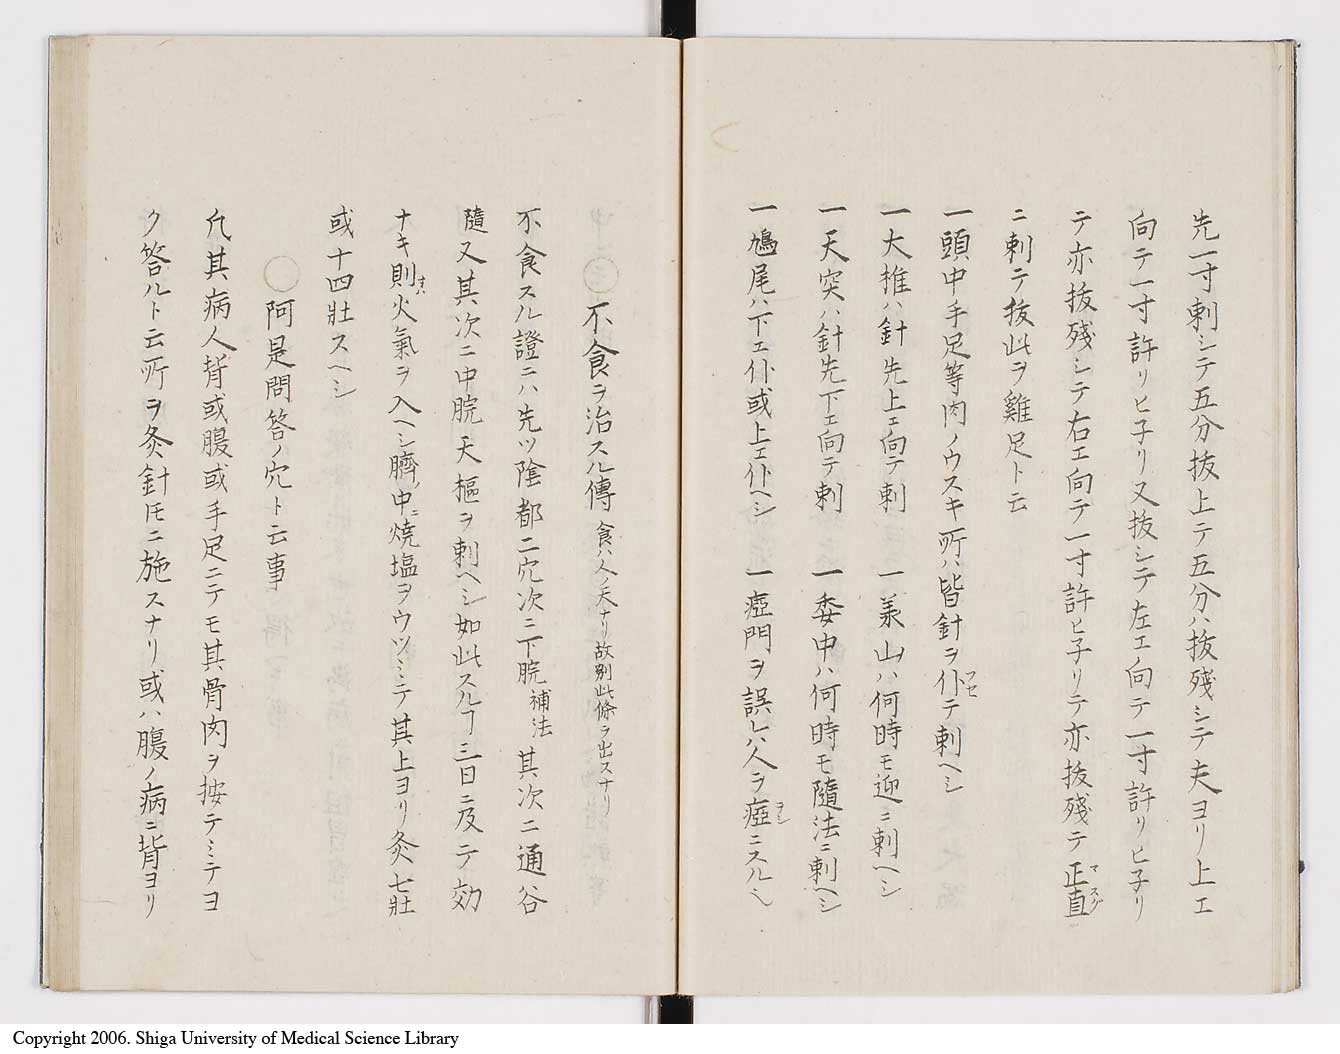 先一寸刺シテ五分抜上テ五分ハ抜残シテ夫ヨリ上エ
向テ一寸許リヒ子リ又抜シテ左エ向テ一寸許リヒ子リ
テ亦抜残シテ右エ向テ一寸許ヒ子リテ亦抜残テ正直マスグ
ニ刺テ抜此ヲ雞足ト云
一頭中手足等肉ノウスキ所ハ皆針ヲ仆フセテ刺ヘシ
一大椎ハ針先上エ向テ刺　一羕山ハ何時モ迎ニ刺ヘシ
一天突ハ針先下エ向テ刺　一委中ハ何時モ隨法ニ刺ヘシ
一鳩尾ハ下エ仆或上エ仆ヘシ　一瘂門ヲ誤レハ人ヲ瘂ヲシニスル
〇不食ヲ治スル傳 食ハ人ノ天ナリ故別此條ヲ出スナリ
不食スル證ニハ先ツ陰都二穴次ニ下脘補法其次ニ通谷
隨又其次ニ中脘天樞ヲ刺ヘシ如此スルヿ三日ニ及テ効
ナキ則キハ火氣ヲ入ヘシ臍ノ中ニ焼塩ヲウツミテ其上ヨリ灸七壯
或十四壯スヘシ
〇阿是問答ノ穴ト云事
凢其病人背或腹或手足ニテモ其骨肉ヲ按テミテヨ
ク答ルト云所ヲ灸針𪜈ニ施スナリ或ハ腹ノ病ニ背ヨリ
Copyright 2006. Shiga University of Medical Science Library